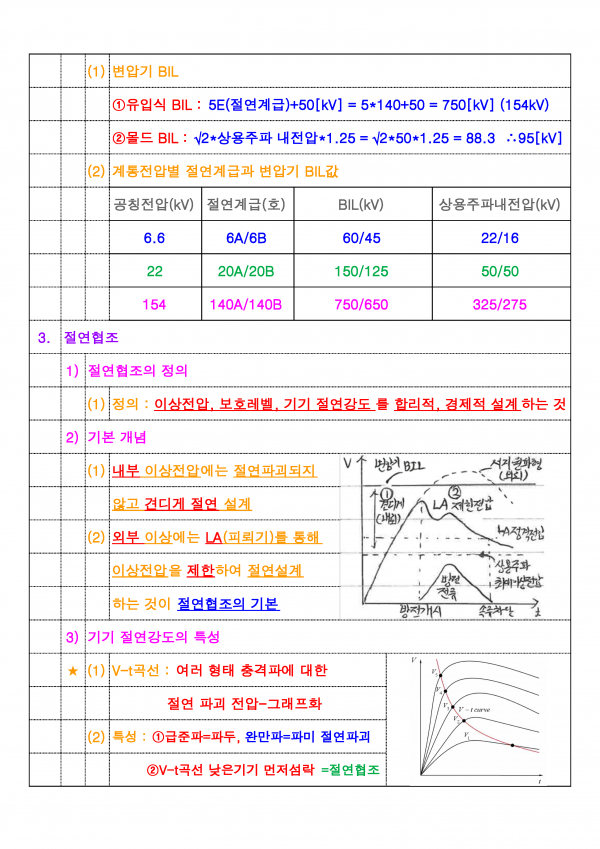 (1) 변압기 BIL
①유입식 BIL : 5E(절연계급)+50[kV] = 5*140+50 = 750[kV] (154kV)
②몰드 BIL : √2*상용주파 내전압*1.25 = √2*50*1.25 = 88.3 ∴95[kV]
(2) 계통전압별 절연계급과 변압기 BIL값
공칭전압(kV) 절연계급(호) BIL(kV) 상용주파내전압(kV)
6.6 6A/6B 60/45 22/16
22 20A/20B 150/125 50/50
154 140A/140B 750/650 325/275
3. 절연협조
1) 절연협조의 정의
(1) 정의 : 이상전압, 보호레벨, 기기 절연강도 를 합리적, 경제적 설계 하는 것
2) 기본 개념
(1) 내부 이상전압에는 절연파괴되지
않고 견디게 절연 설계
(2) 외부 이상에는 LA(피뢰기)를 통해
이상전압을 제한하여 절연설계
하는 것이 절연협조의 기본
V
변압기 BIL
서지 원파형
(외뢰)
①
견디게
(내뢰)
②
LA 제한전압
LA 정격전압
상용주파
최대허용전압
방전
전류
방전개시
속류차단
t
3) 기기 절연강도의 특성
★ (1) V-t곡선 : 여러 형태 충격파에 대한
절연 파괴 전압-그래프화
(2) 특성 : ①급준파=파두, 완만파=파미 절연파괴
②V-t곡선 낮은기기 먼저섬락 =절연협조
V
V5
V4
V3
V - t curve
V2
V1
t